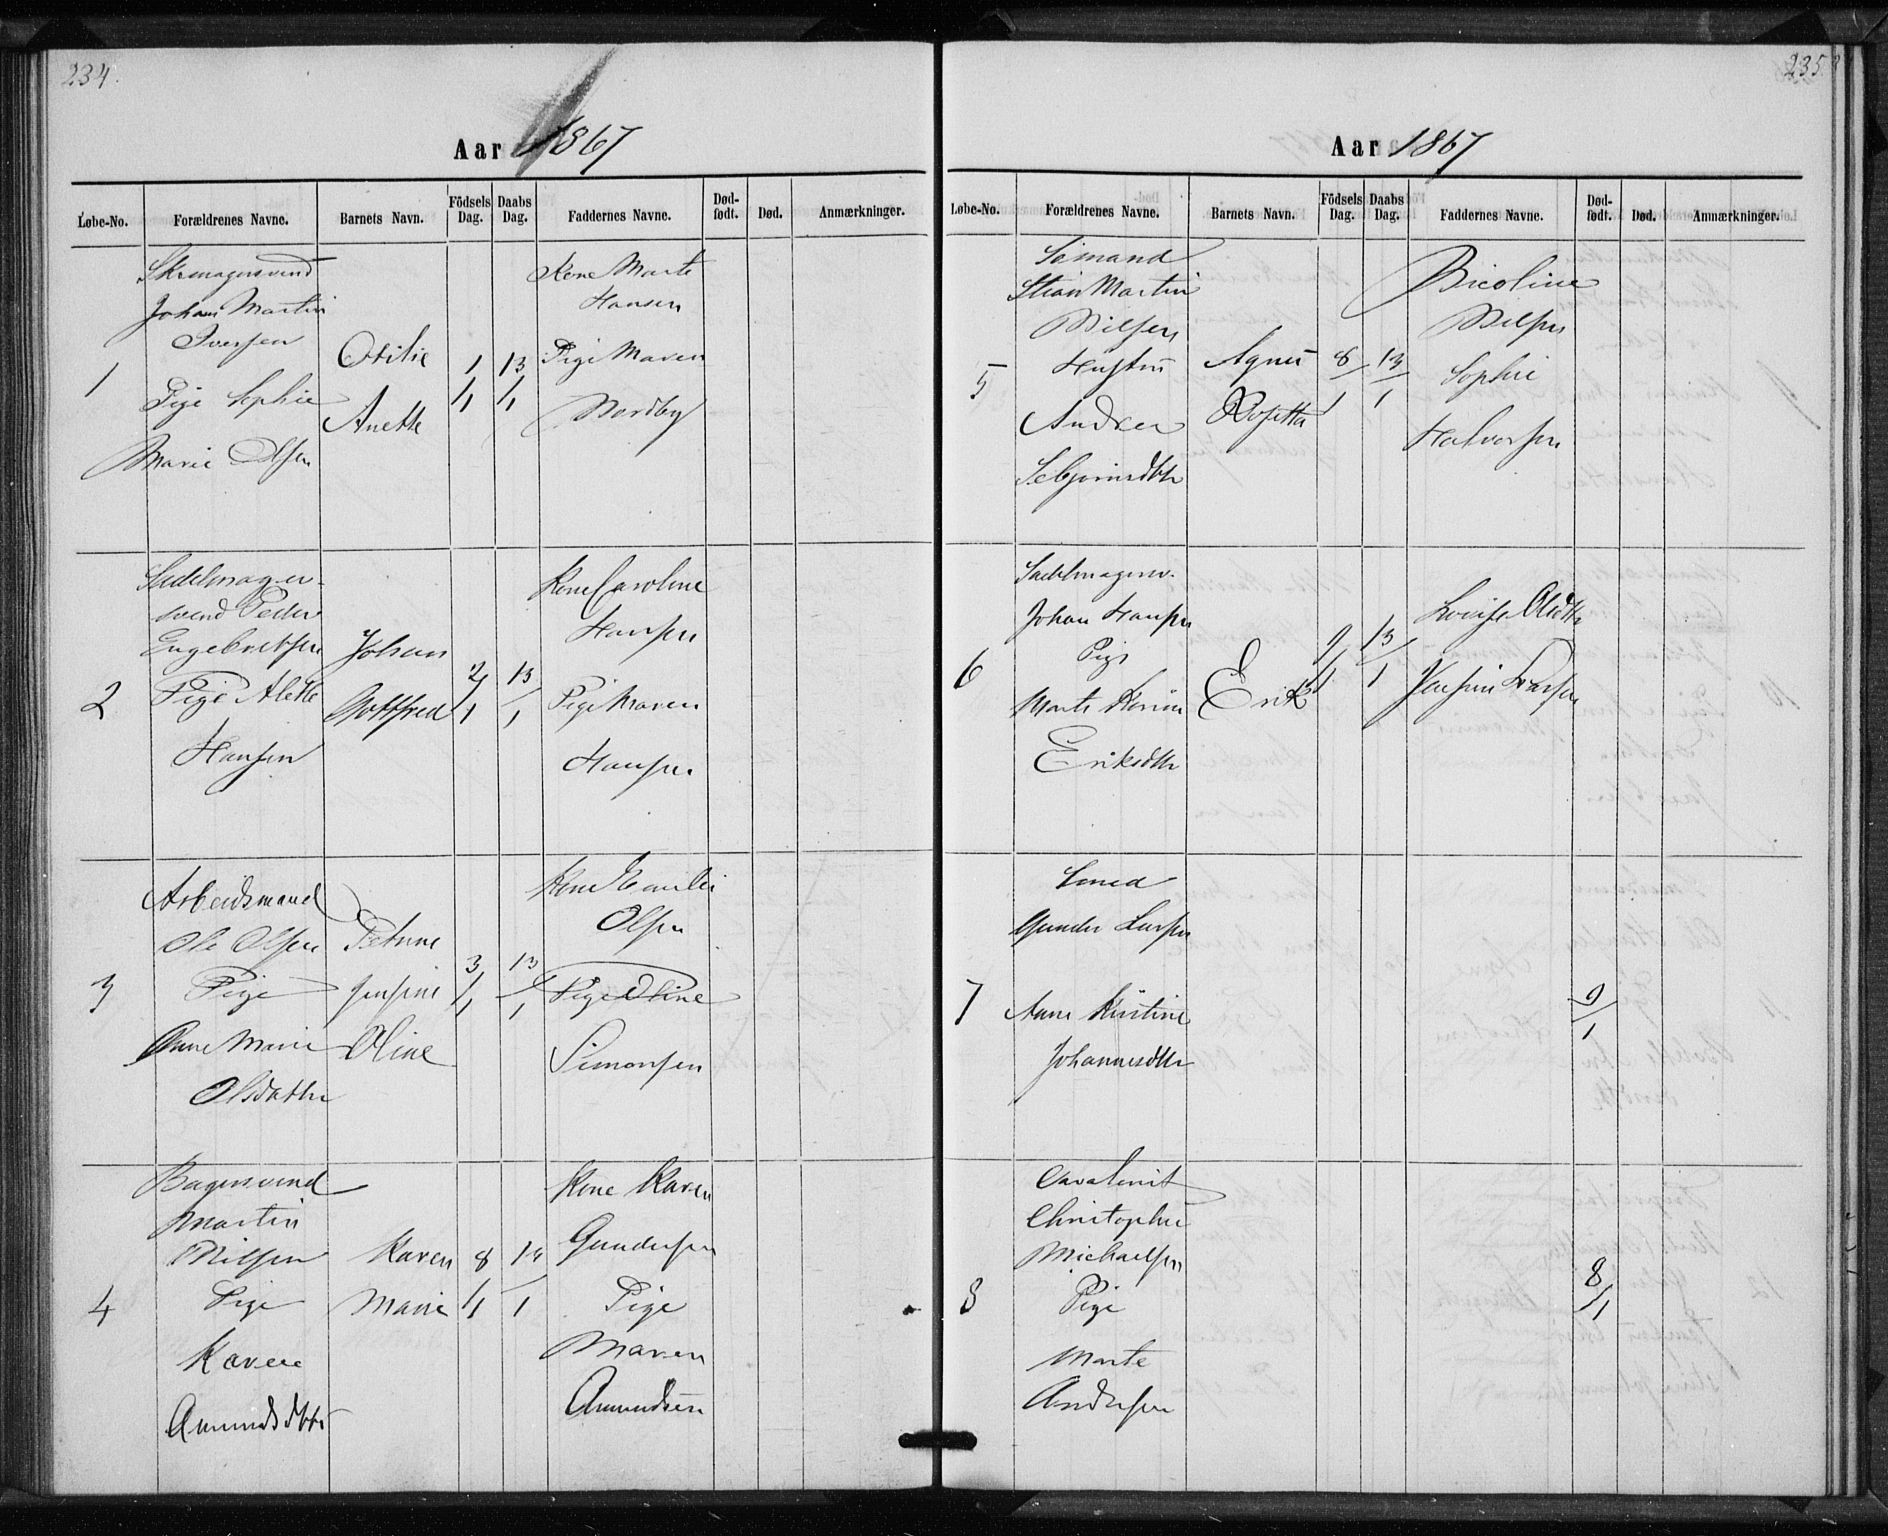 234.
Aar 1867
Løbe-No. Forældrenes Navne. Barnets Navn. Födsels Dag. Daabs Dag. Faddernes Navne. Død-født. Død. Anmærkninger.
1
Skomagersvend
Johan Martin
Iversen
Pige Sophie
Marie Olsen
Otilie
Anette
1/1
13/1
Kone Marte
Hansen
Pige Maren
Nordby
2
Sadelmager-
svend Peder
Engebretsen
Pige Alette
Hansen
Johan
Gottfred
2/1
13/1
Kone Caroline
Hansen
Pige Maren
Hansen
3
Arbeidsmand
Ole Olsen
Pige
Anne Marie
Olsdatter
Petrine
Jensine
Oline
3/1
13/1
Kone Emilie
Olsen
Pige Oline
Simonsen
4
Bagersvend
Martin
Nilsen
Pige
Karen
Amundsdttr
Karen
Marie
8/1
14/1
Kone Karen
Gundersen
Pige
Maren
Amundsen
235
Aar 1867
Løbe-No. Forældrenes Navne. Barnets Navn. Födsels Dag. Daabs Dag. Faddernes Navne. Død-født. Død. Anmærkninger.
5
Sömand
Stian Martin
Nilsen
Hustru
Andrea
Agnes
Rosetta
8/1
13/1
Nicoline
Nilsen
Sophie
Halvorsen
6
Sadelmagersv.
Johan Hansen
Pige
Marte Karine
Eriksdttr
Erik
9/1
13/1
Lovise Olsdttr
Jensine Larsen
7
Gunder Larsen
Anne Kristine
Johannesdttr
9/1
8
Cavalerist
Christopher
Michaelsen
Pige
Marte
Andersen
8/1